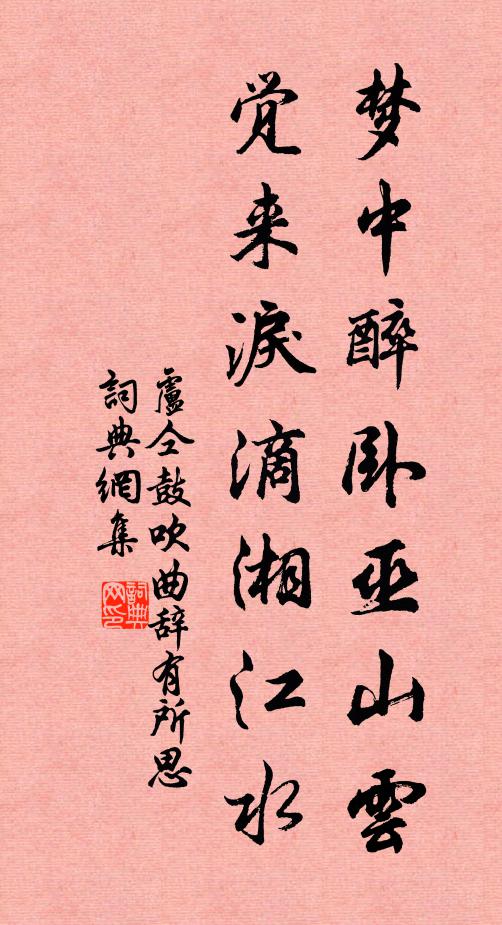 梦中醉卧巫山雲
觉来淚滴湘江水
盧仝鼓吹曲辞有所思
詞典網集
詞典网印